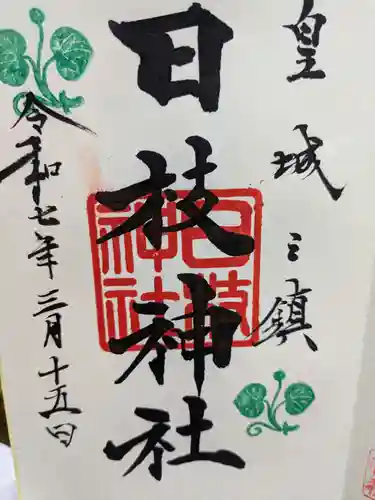 皇城之鎮
日枝神社
令和七年三月十五日
日枝神社